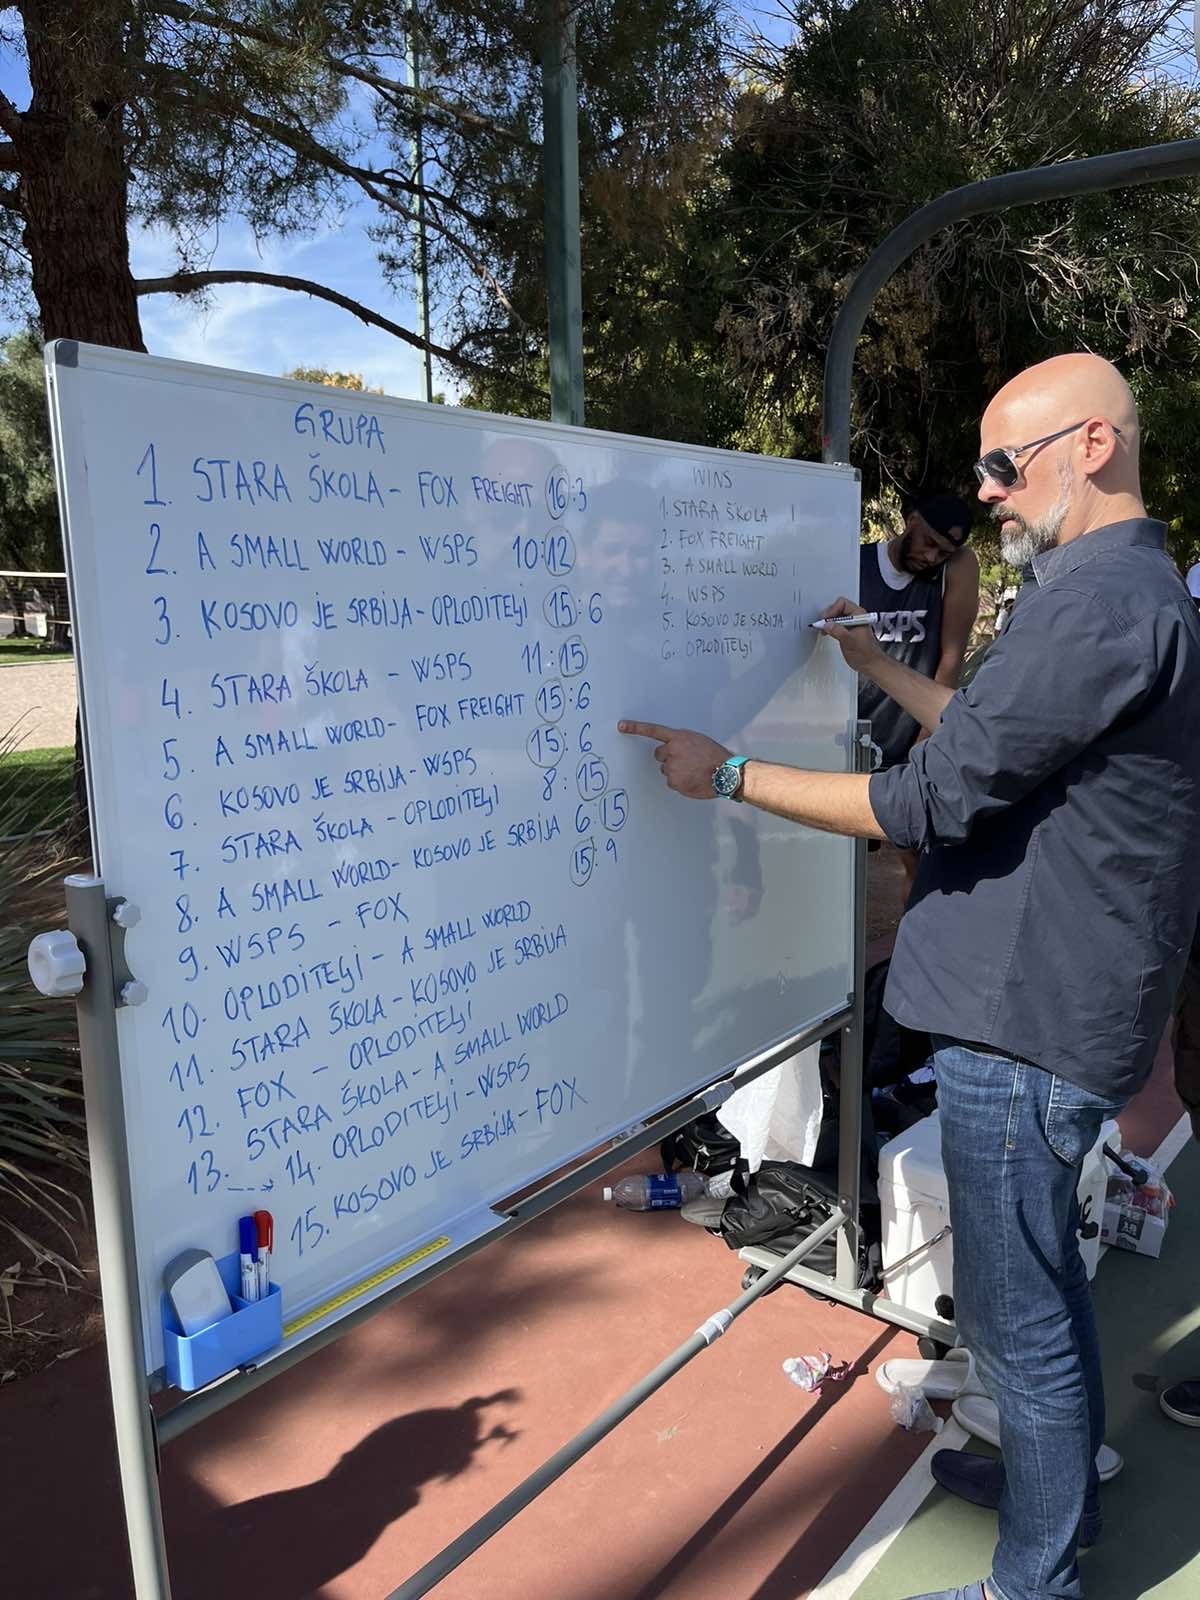 GRUPA
1. STARA ŠKOLA - FOX FREIGHT 16:3
2. A SMALL WORLD - WSPS 10:12
3. KOSOVO JE SRBIJA - OPLODITELJI 15:6
4. STARA ŠKOLA - WSPS 11:15
5. A SMALL WORLD - FOX FREIGHT 15:6
6. KOSOVO JE SRBIJA - WSPS 15:6
7. STARA ŠKOLA - OPLODITELJI 8:15
8. A SMALL WORLD - KOSOVO JE SRBIJA 6:15
9. WSPS - FOX 15:9
10. OPLODITELJI - A SMALL WORLD
11. STARA ŠKOLA - KOSOVO JE SRBIJA
12. FOX - OPLODITELJI
13. STARA ŠKOLA - A SMALL WORLD
14. OPLODITELJI - WSPS
15. KOSOVO JE SRBIJA - FOX
WINS
1. STARA ŠKOLA I
2. FOX FREIGHT
3. A SMALL WORLD I
4. WSPS II
5. KOSOVO JE SRBIJA II
6. OPLODITELJI
WSPS